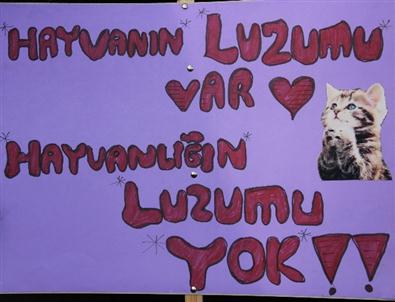 HAYVANIN LUZUMU
VAR
HAYVANLIĞIN
LUZUMU
YOK!!